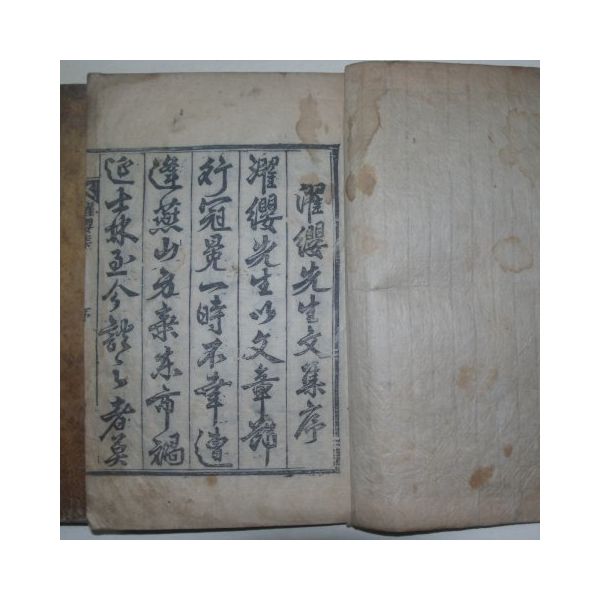 濯纓先生文集序
濯纓先生以文章節
行冠冕一時不幸遭
逢燕山棄東市禍
延士林至今談之者莫
濯纓集